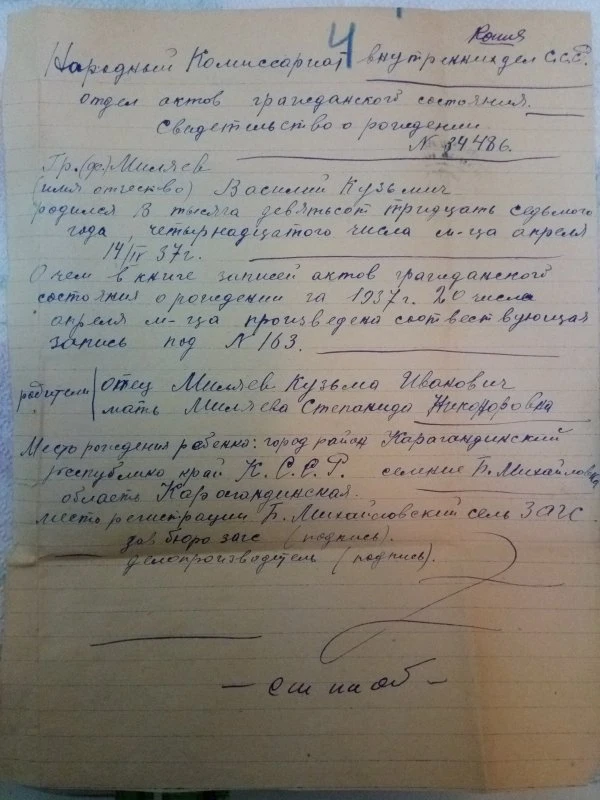 Копия
4
Народный Комиссариат внутренних дел С.С.Р.
отдел актов гражданского состояния.
Свидетельство о рождении
N 34486.
Гр. (ф) Миляев
(имя отчество) Василий Кузьмич
родился в тысяга девятьсот тридцать седьмого
года, четырнадцатого числа м-ца апреля
14/IV 37г.
О чем в книге записей актов гражданского
состояния о рождении за 1937г. 20 числа
апреля м-ца произведена соотвествующая
запись под N 163.
родители
отец Миляев Кузьма Иванович
мать Миляева Степанида Никоноровна
Место рождения ребенка: город район Карагандинский
республика край К.С.С.Р. селение Б. Михайловка
область Карогондинская.
место регистрации Б. Михайловский сель ЗАГС
зав. бюро загс (подпись).
делопроизводитель (подпись).